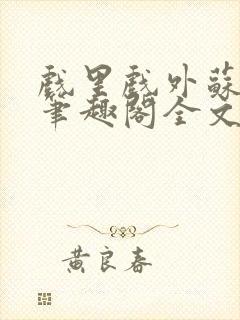 戲里戲外蘇
筆趣閣全文
黄良春